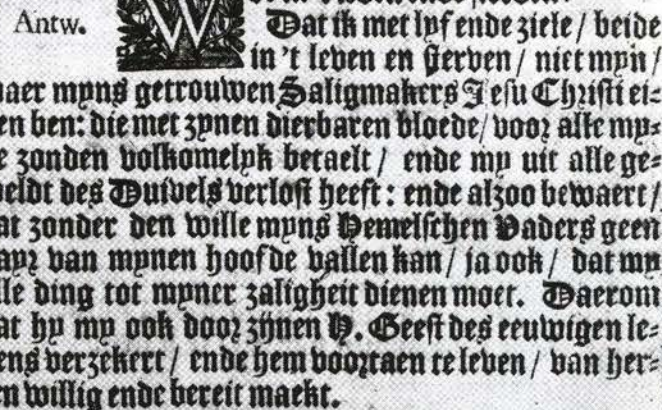 Antw.
W
Dat ik met lyf ende ziele / beide
in 't leven en sterven / niet myn /
aer myns getrouwen Saligmakers Jesu Christi ei=
en ben: die met zynen dierbaren bloede / voor alle my=
e zonden volkomelyk betaelt / ende my uit alle ge=
eldt des Duivels verlost heeft: ende alzoo bewaert /
at zonder den wille myns Hemelschen Vaders geen
ayr van mynen hoofde vallen kan / ja ook / dat my
lle ding tot myner zaligheit dienen moet. Daerom
at hy my ook door zijnen H. Geest des eeuwigen le=
ens verzekert / ende hem voortaen te leven / van her=
en willig ende bereit maekt.